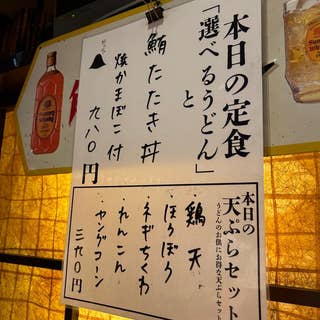 本日の定食
「選べるうどん」
と
鮪たたき丼
焼かまぼこ付
九八〇円
本日の
天ぷらセット
うどんのお供にお得な天ぷらセット
・鶏天
・ほうぼう
・ネギちくわ
・れんこん
・ヤングコーン
三九〇円